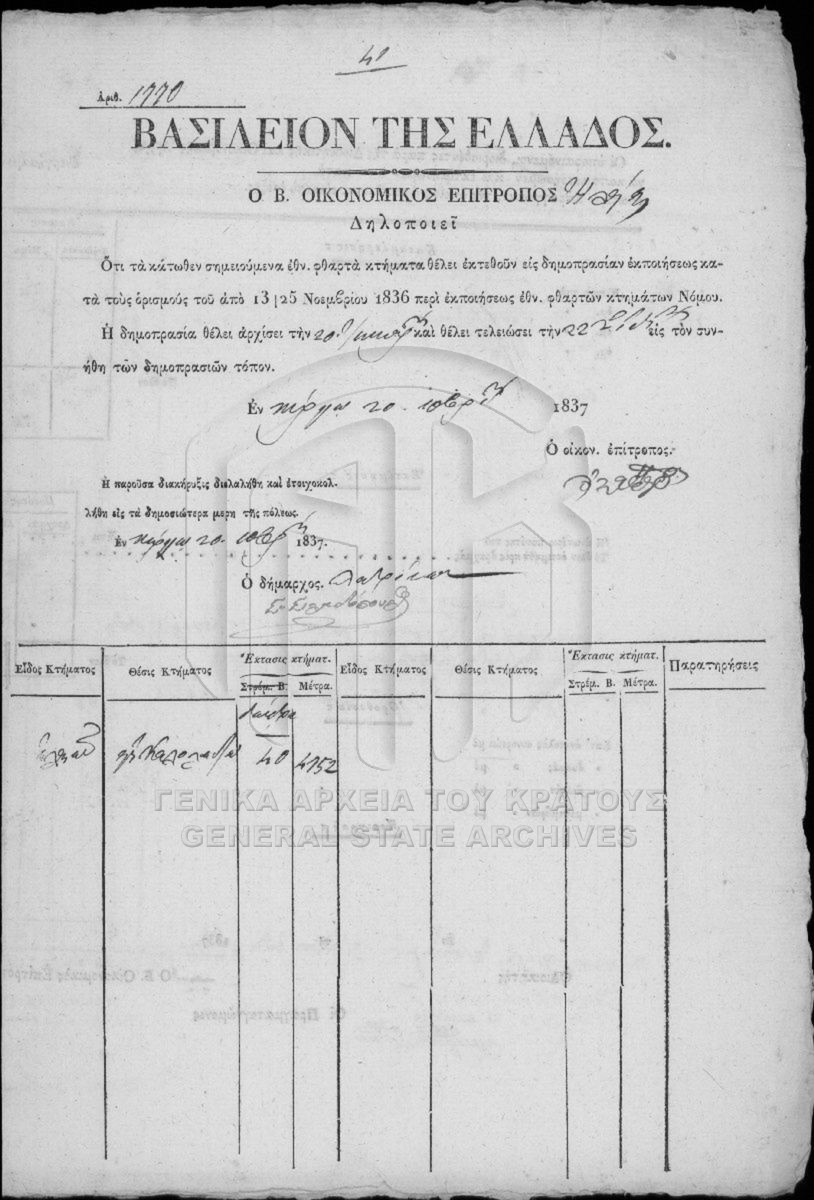 41
Ἀριθ. 1770
ΒΑΣΙΛΕΙΟΝ ΤΗΣ ΕΛΛΑΔΟΣ.
Ο Β. ΟΙΚΟΝΟΜΙΚΟΣ ΕΠΙΤΡΟΠΟΣ
Δηλοποιεῖ
Ὅτι τὰ κάτωθεν σημειούμενα ἐθν. φθαρτὰ κτήματα θέλει ἐκτεθοῦν εἰς δημοπρασίαν ἐκποιήσεως κα-
τὰ τοὺς ὁρισμοὺς τοῦ ἀπὸ 13|25 Νοεμβρίου 1836 περὶ ἐκποιήσεως ἐθν. φθαρτῶν κτημάτων Νόμου.
Ἡ δημοπρασία θέλει ἀρχίσει τὴν 20 καὶ θέλει τελειώσει τὴν 22 εἰς τὸν συν-
ήθη τῶν δημοπρασιῶν τόπον.
Ἐν πύργῳ 20 1837
Ὁ οἰκον. ἐπίτροπος.
Ἡ παροῦσα διακήρυξις διελαλήθη καὶ ἐτοιχοκολ-
λήθη εἰς τὰ δημοσιώτερα μέρη τῆς πόλεως.
Ἐν πύργῳ 20 1837.
Ὁ δήμαρχος.
Εἶδος Κτήματος Θέσις Κτήματος Ἔκτασις κτήματ. Εἶδος Κτήματος Θέσις Κτήματος Ἔκτασις κτήματ. Παρατηρήσεις
Στρέμ. Β. Μέτρα. Στρέμ. Β. Μέτρα.
40 4152
ΓΕΝΙΚΑ ΑΡΧΕΙΑ ΤΟΥ ΚΡΑΤΟΥΣ
GENERAL STATE ARCHIVES